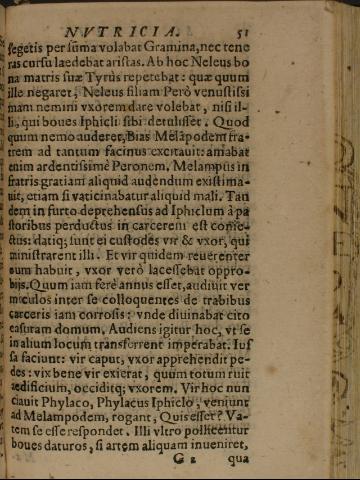 NVTRICIA. 51
segetis per sũma volabat Gramina, nec tene
ras cursu laedebat aristas. Ab hoc Neleus bo
na matris suæ Tyrùs repetebat: quæ quum
ille negaret, Neleus filiam Però venustissi
mam nemini vxorem dare volebat, nisi il-
li, qui boues Iphicli sibi detulisset. Quod
quum nemo auderet, Bias Melãpodem fra-
trem ad tantum facinus excitauit: amabat
enim ardentissimè Peronem. Melampus in
fratris gratiam aliquid audendum existima-
uit, etiam si vaticinabatur aliquid mali. Tan
dem in furto deprehensus ad Iphiclum à pa
storibus perductus in carcerem est conie-
ctus: datiq; sunt ei custodes vir & vxor, qui
ministrarent illi. Et vir quidem reuerenter
eum habuit, vxor verò lacessebat oppro-
bijs. Quum iam ferè annus esset, audiuit ver
miculos inter se colloquentes de trabibus
carceris iam corrosis: vnde diuinabat cito
casuram domum. Audiens igitur hoc, vt se
in alium locum transferrent imperabat. Ius
sa faciunt: vir caput, vxor apprehendit pe-
des: vix bene vir exierat, quum totum ruit
aedificium, occiditq; vxorem. Vir hoc nun
ciauit Phylaco, Phylacus Iphiclo, veniunt
ad Melampodem, rogant, Quis esset? Va-
tem se esse respondet. Illi vltro pollicentur
boues daturos, si artem aliquam inueniret,
G 2 qua